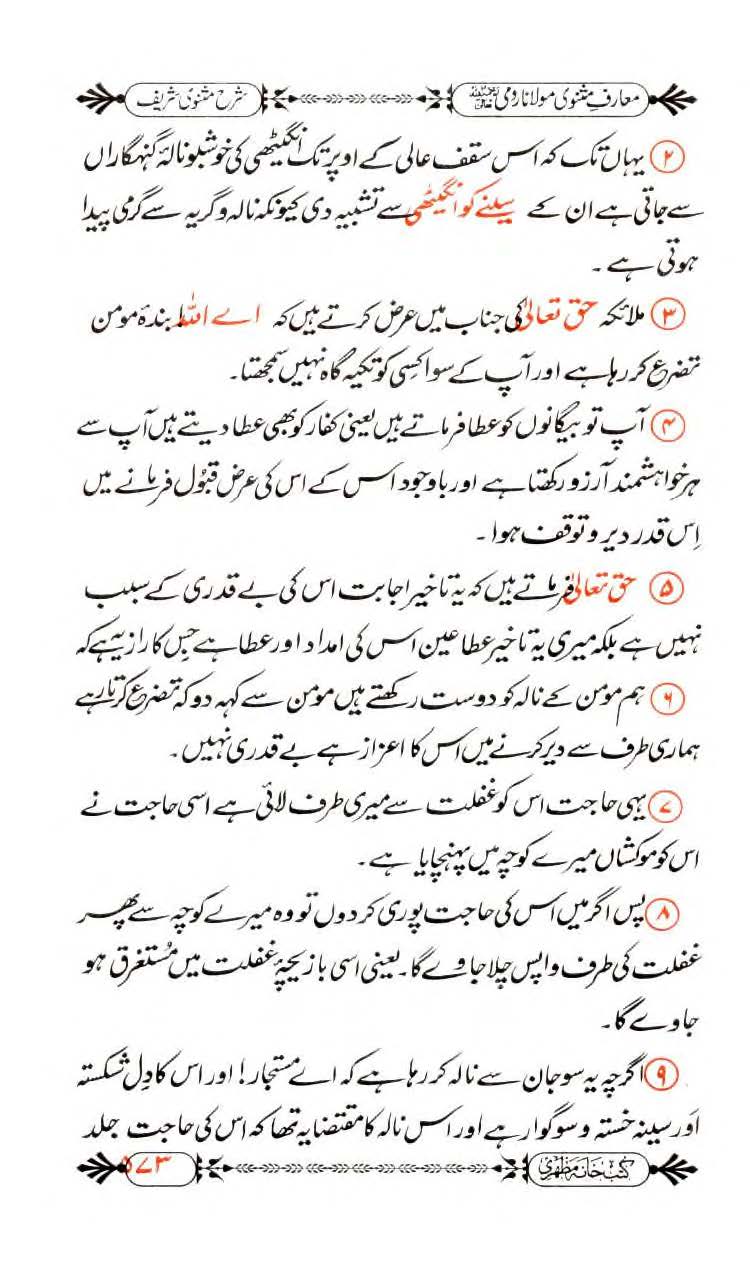 معارفِ مثنوی مولانا رومی رحمۃ اللہ علیہ
شرح مثنوی شریف
۲ یہاں تک کہ اس سقف عالی کے اوپر تک انگیٹھی کی خوشبو نالۂ گنہگاراں
سے جاتی ہے ان کے سینے کو انگیٹھی سے تشبیہ دی کیونکہ نالہ و گریہ سے گرمی پیدا
ہوتی ہے۔
۳ ملائکہ حق تعالیٰ کی جناب میں عرض کرتے ہیں کہ اے اللہ! بندۂ مومن
تضرع کر رہا ہے اور آپ کے سوا کسی کو تکیہ گاہ نہیں سمجھتا۔
۴ آپ تو بیگانوں کو عطا فرماتے ہیں یعنی کفار کو بھی عطا دیتے ہیں آپ سے
ہر خواہشمند آرزو رکھتا ہے اور باوجود اس کے اس کی عرض قبُول فرمانے میں
اِس قدر دیر و توقف ہوا۔
۵ حق تعالیٰ فرماتے ہیں کہ یہ تاخیر اجابت اس کی بے قدری کے سبب
نہیں ہے بلکہ میری یہ تاخیر عطا عین اس کی امداد اور عطا ہے جس کا راز یہ ہے کہ
۶ ہم مومن کے نالہ کو دوست رکھتے ہیں مومن سے کہہ دو کہ تضرع کرتا رہے
ہماری طرف سے دیر کرنے میں اس کا اعزاز ہے بے قدری نہیں۔
۷ یہی حاجت اس کو غفلت سے میری طرف لائی ہے اسی حاجت نے
اس کو موکشاں میرے کوچہ میں پہنچایا ہے۔
۸ پس اگر میں اس کی حاجت پوری کر دوں تو وہ میرے کوچہ سے پھر
غفلت کی طرف واپس چلا جاوے گا۔ یعنی اسی بازیچۂ غفلت میں مُستغرق ہو
جاوے گا۔
۹ اگرچہ یہ سو جان سے نالہ کر رہا ہے کہ اے مستجار! اور اس کا دِل شکستہ
اور سینہ خستہ و سوگوار ہے اور اس نالہ کا مقتضا یہ تھا کہ اس کی حاجت جلد
کتب خانہ مظہری
۵۷۳